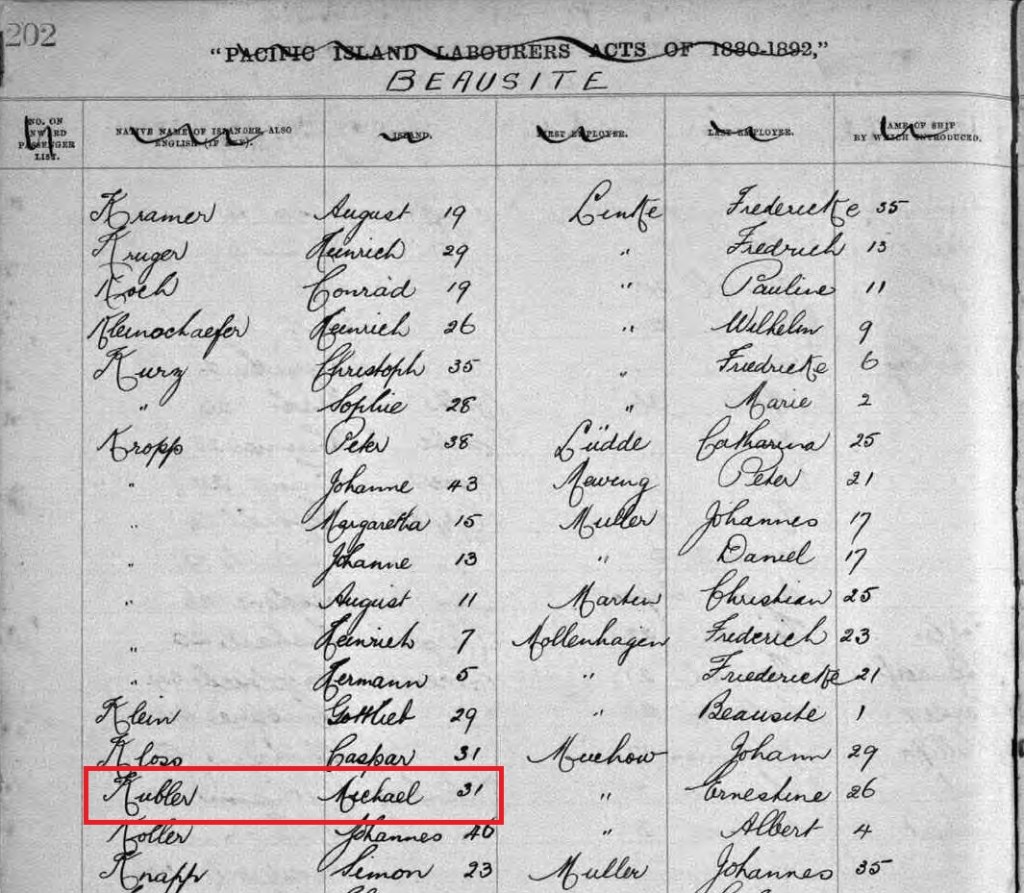 202
"PACIFIC ISLAND LABOURERS ACTS OF 1880-1892,"
BEAUSITE
NO. ON INWARD PASSENGER LIST. NATIVE NAME OF ISLANDER, ALSO ENGLISH (IF ANY). ISLAND. FIRST EMPLOYER. LAST EMPLOYER. NAME OF SHIP BY WHICH INTRODUCED.
Kramer August 19 Linke Fredericke 35
Kruger Heinrich 29 " Fredrich 13
Koch Conrad 19 " Pauline 11
Kleinschaefer Heinrich 26 " Wilhelm 9
Kurz Christoph 35 " Friedricke 6
" Sophie 28 " Marie 2
Kropp Peter 38 Lüdde Catharina 25
" Johanne 43 Meving Peter 21
" Margaretha 15 Muller Johannes 17
" Johanne 13 " Daniel 17
" August 11 Marten Christian 25
" Heinrich 7 Mollenhagen Frederich 23
" Hermann 5 " Friedericke 21
Klein Gottlieb 29 " Beausite 1
Kloss Caspar 31 Muchow Johann 29
Kubler Michael 31 " Ernestine 26
Koller Johannes 46 " Albert 4
Knapp Simon 23 Muller Johannes 35